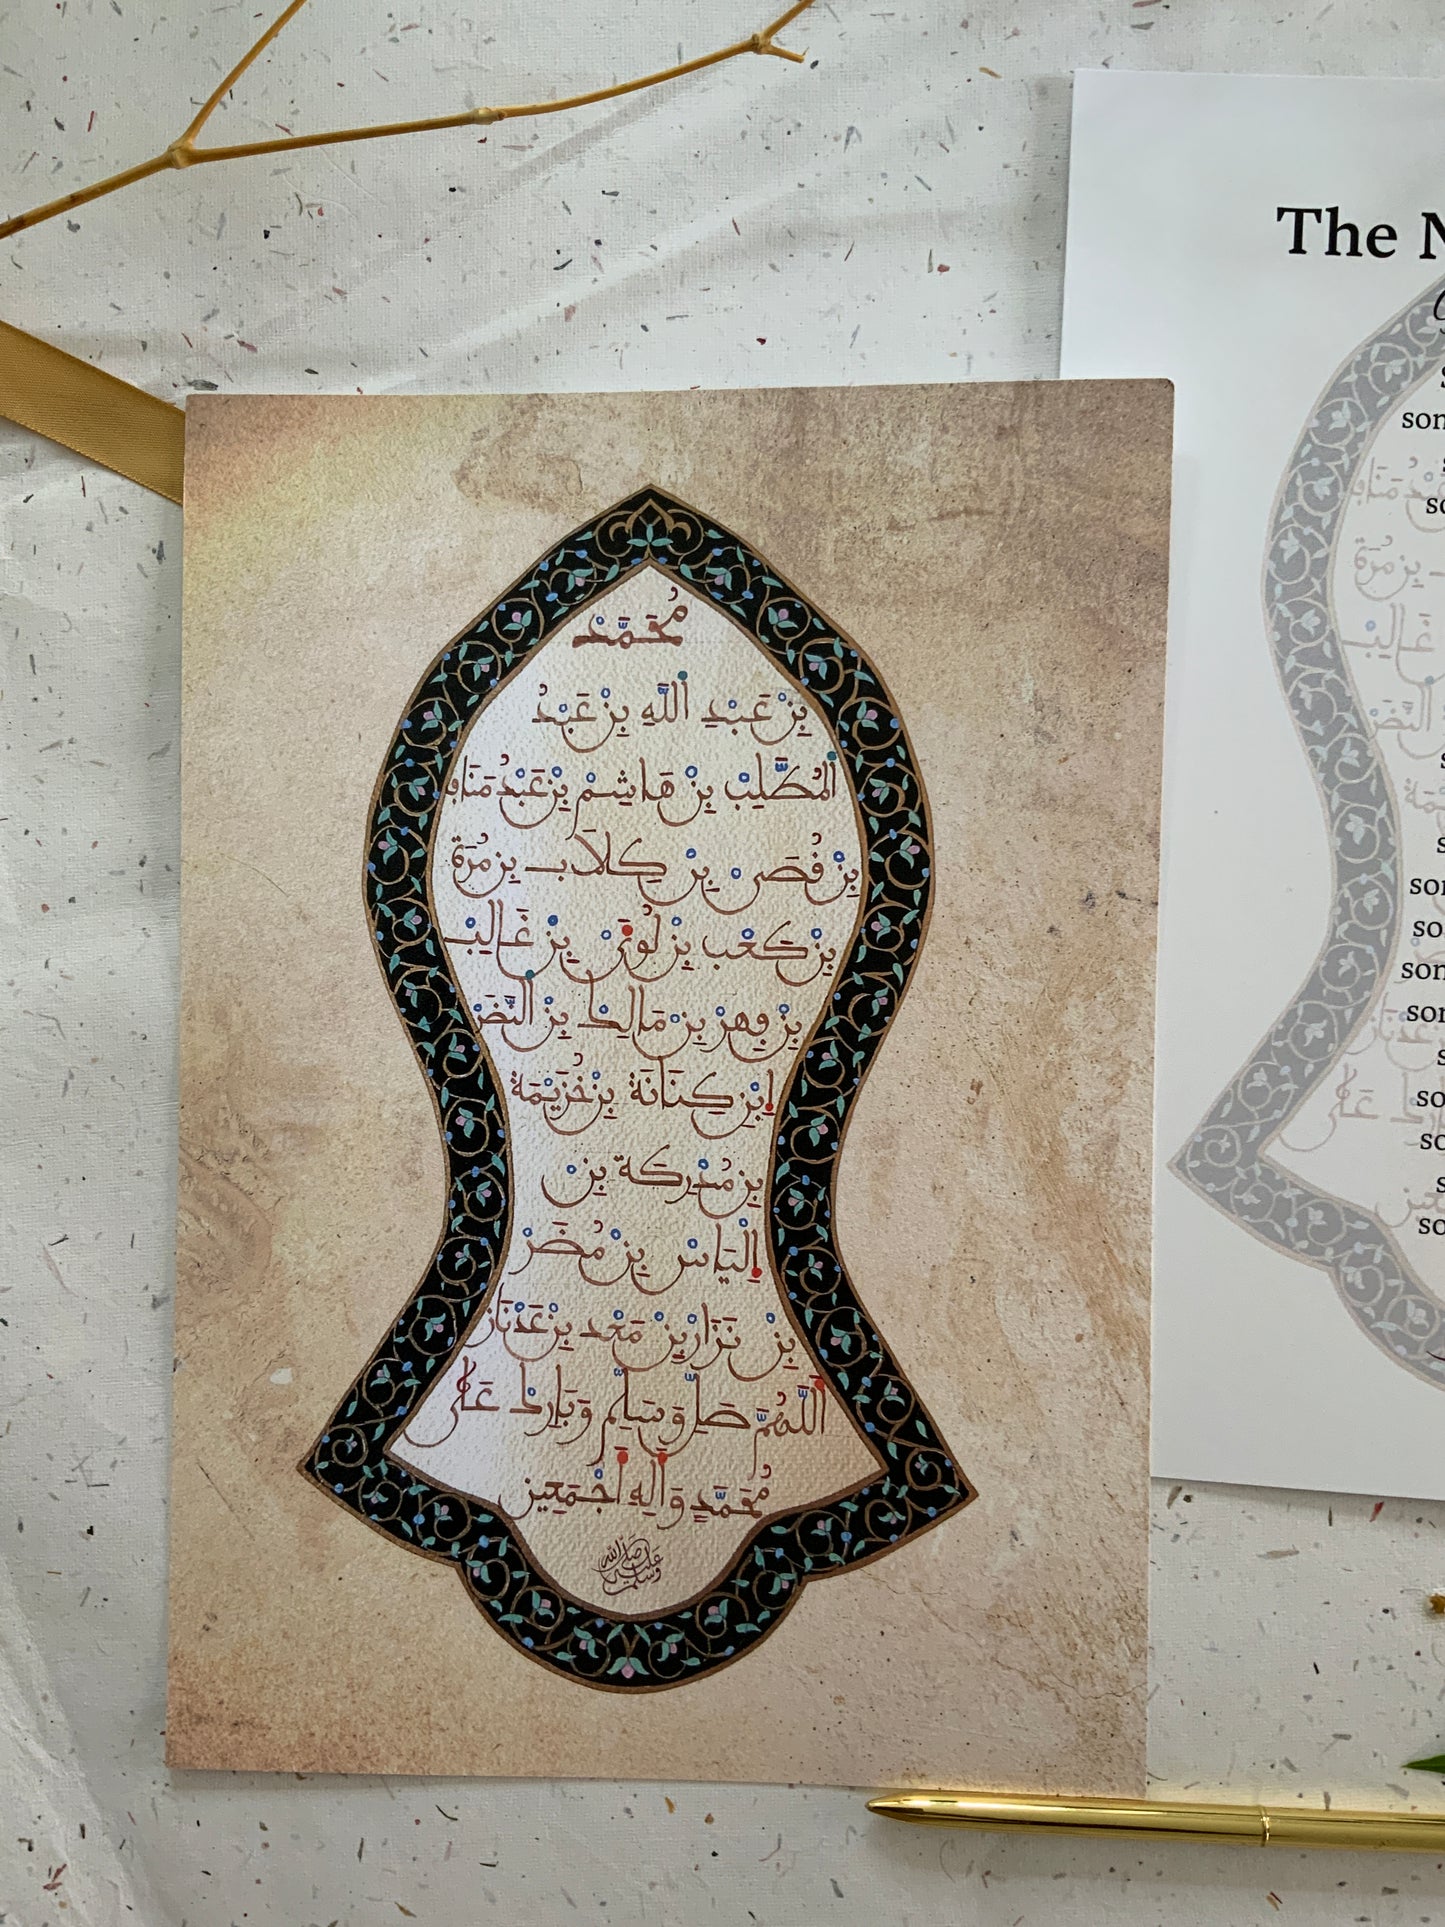 مُحَمَّدْ
بِنْ عَبْدِ اللَّهِ بِنْ عَبْدُ
الْمُطَّلِبْ بِنْ هَاشِمْ بِنْ عَبْدُ مَنَافْ
بِنْ قُصَىْ بِنْ كِلَابْ بِنْ مُرَة
بِنْ كَعْب بِنْ لُوَىْ بِنْ غَالِبْ
بِنْ فِهِرْ بِنْ مَالِكْ بِنْ النَّضَرْ
اِبْنِ كِنَانَة بِنْ خُزَيْمَة
بِنْ مُدْرِكَة بِنْ
اِلْيَاسْ بِنْ مُضَرْ
بِنْ نَزَارْ بِنْ مَعْد بِنْ عَدْنَان
اَللَّهُمَّ صَلِّ وَسَلِّمْ وَبَارِكْ عَلَى
مُحَمَّدٍ وَأَلِهِ أَجْمَعِين
صلى الله عليه وسلم
The
son
son
son
son